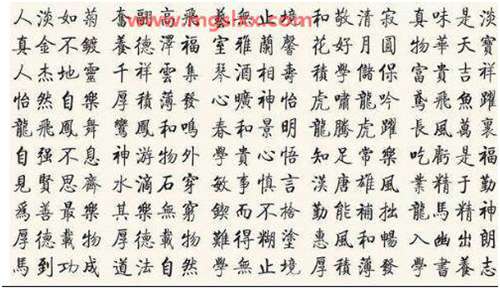 www.mgslxx.com
人淡如菊 奮翮高飛 學無止境 和敬清寂 真味是淡
真金不鍍 養德澤福 室雅蘭馨 花好月圓 物華天寶
人杰地靈 千祥雲集 琴酒相壽 積學儲保 富貴吉祥
怡然自樂 厚積薄發 心曠神怡 虎嘯龍吟 鳶飛魚躍
龍飛鳳舞 鸞鳳和鳴 春和景明 龍騰虎躍 長風萬裏
自强不息 神游物外 學貴心悟 知足常樂 吃虧是福
見賢思齊 水滴石穿 敏事慎言 漢唐雄風 業精于勤
爲善最樂 其樂無窮 鍥而不捨 勤能補拙 龍馬精神
厚德載物 厚德載物 難得糊塗 惠風和暢 入幽出朗
馬到功成 道法自然 學無止境 厚積薄發 學書養志